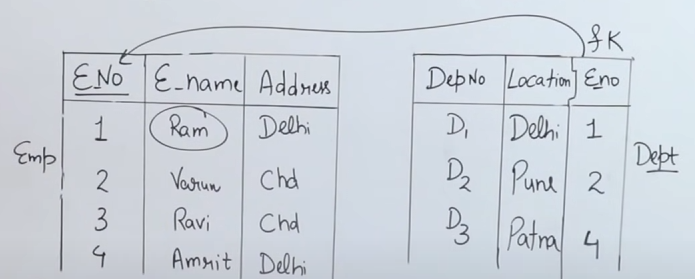 fK
E.No E_name Address
DepNo Location Eno
1 Ram Delhi
D1 Delhi 1
Emp
Dept
2 Varun Chd
D2 Pune 2
3 Ravi Chd
D3 Patna 4
4 Amrit Delhi